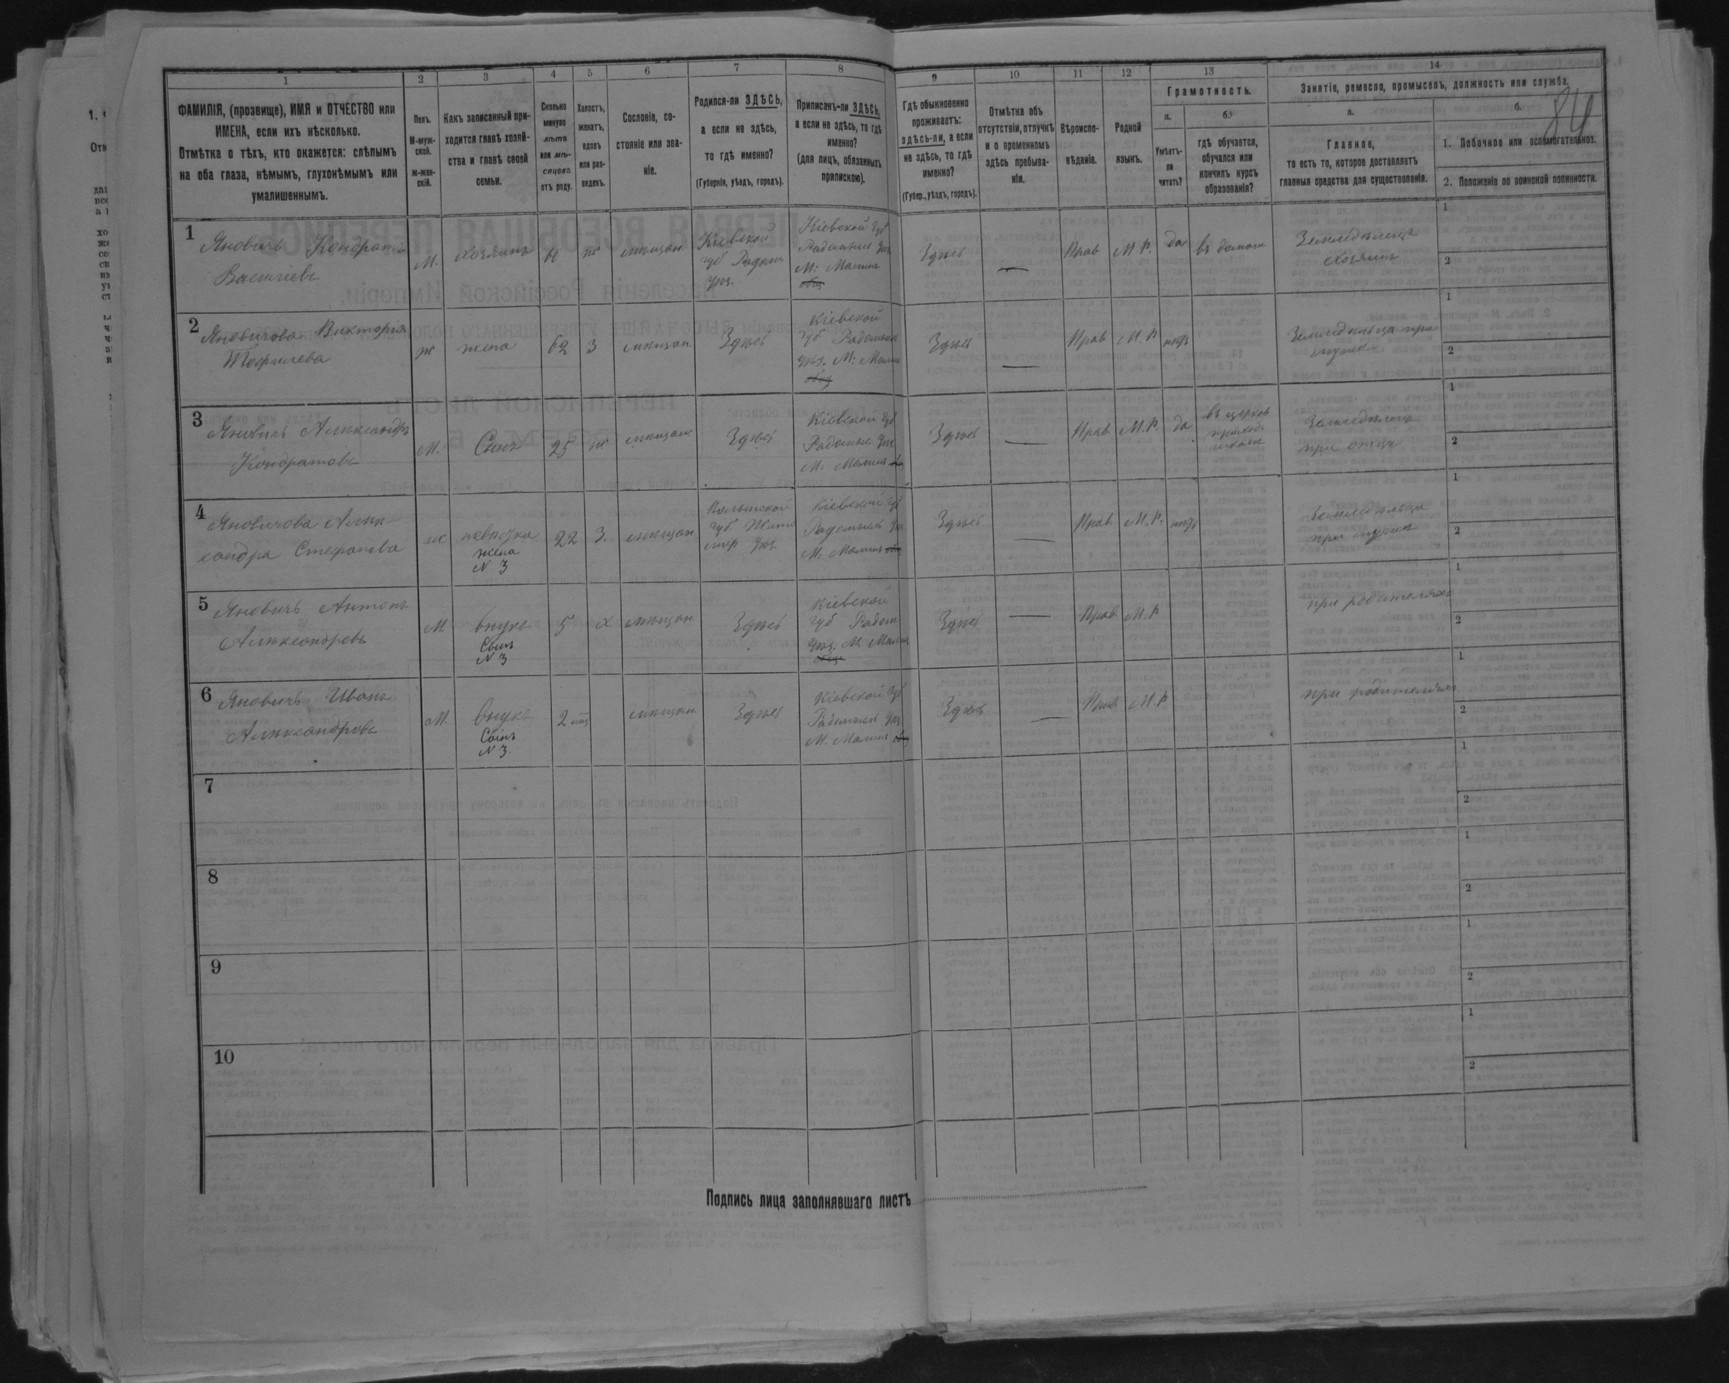 84
1 2 3 4 5 6 7 8 9 10 11 12 13 14
ФАМИЛІЯ, (прозвище), ИМЯ и ОТЧЕСТВО или
ИМЕНА, если ихъ нѣсколько.
Отмѣтка о тѣхъ, кто окажется: слѣпымъ
на оба глаза, нѣмымъ, глухонѣмымъ или
умалишеннымъ.
Полъ.
М-муж-
ской.
ж-жен-
скій.
Какъ записанный при-
ходится главѣ хозяй-
ства и главѣ своей
семьи.
Сколько
минуло
лѣтъ
или мѣ-
сяцевъ
отъ роду.
Холостъ,
женатъ,
вдовъ
или раз-
веденъ.
Сословіе, со-
стояніе или зва-
ніе.
Родился-ли ЗДѢСЬ,
а если не здѣсь,
то гдѣ именно?
(Губернія, уѣздъ, городъ).
Приписанъ-ли ЗДѢСЬ,
а если не здѣсь, то гдѣ
именно?
(для лицъ, обязанныхъ
припискою).
Гдѣ обыкновенно
проживаетъ:
здѣсь-ли, а если
не здѣсь, то гдѣ
именно?
(Губер., уѣздъ, городъ).
Отмѣтка объ
отсутствіи, отлучкѣ
и о временномъ
здѣсь пребыва-
ніи.
Вѣроиспо-
вѣданіе.
Родной
языкъ.
Грамотность.
а.
Умѣетъ-
ли
читать?
б.
гдѣ обучается,
обучался или
кончилъ курсъ
образованія?
Занятіе, ремесло, промыселъ, должность или служба.
а.
Главное,
то есть то, которое доставляетъ
главныя средства для существованія.
б.
1. Побочное или вспомогательное.
2. Положеніе по воинской повинности.
1
Яновичъ Кондратъ
Васильевъ
М.
хозяинъ
ж
мѣщан
Кіевской
губ Радом
уѣз.
Кіевской губ
Радомыл уѣз
М. Малин
Здѣсь
—
Прав
М. Р.
да
въ дома
Земледѣлецъ
хозяинъ
1
2
2
Яновичова Виктория
Теофилева
ж
жена
62
З
мѣщан
Здѣсь
Кіевской
губ Радомыл
уѣз. М. Малин
Здѣсь
—
Прав
М. Р.
нѣтъ
Земледѣльца при
мужѣ
1
2
3
Яновичъ Александръ
Кондратовъ
М.
Сынъ
25
ж
мѣщан
Здѣсь
Кіевской губ
Радомыс уѣз
М. Малин
Здѣсь
—
Прав
М. Р.
да
въ церков
приход
школѣ
Земледѣлецъ
при отцѣ
1
2
4
Яновичова Алек-
сандра Стефанева
ж
невѣстка
жена
N 3
22
З.
мѣщан
Волынской
губ Жито
мир уѣз.
Кіевской губ
Радомыл уѣз
М. Малин
Здѣсь
—
Прав
М. Р.
нѣтъ
Земледѣльца
при мужѣ
1
2
5
Яновичъ Антонъ
Александровъ
М
внукъ
Сынъ
N 3
5
х
мѣщан
Здѣсь
Кіевской
губ Радом
уѣз. М. Малин
Здѣсь
—
Прав
М. Р
при родителяхъ
1
2
6
Яновичъ Иванъ
Александровъ
М
внукъ
Сынъ
N 3
2
мѣщан
Здѣсь
Кіевской губ
Радомыл уѣз
М. Малин
Здѣсь
—
Прав
М. Р
при родителяхъ
1
2
7
1
2
8
1
2
9
1
2
10
1
2
Подпись лица заполнявшаго листъ